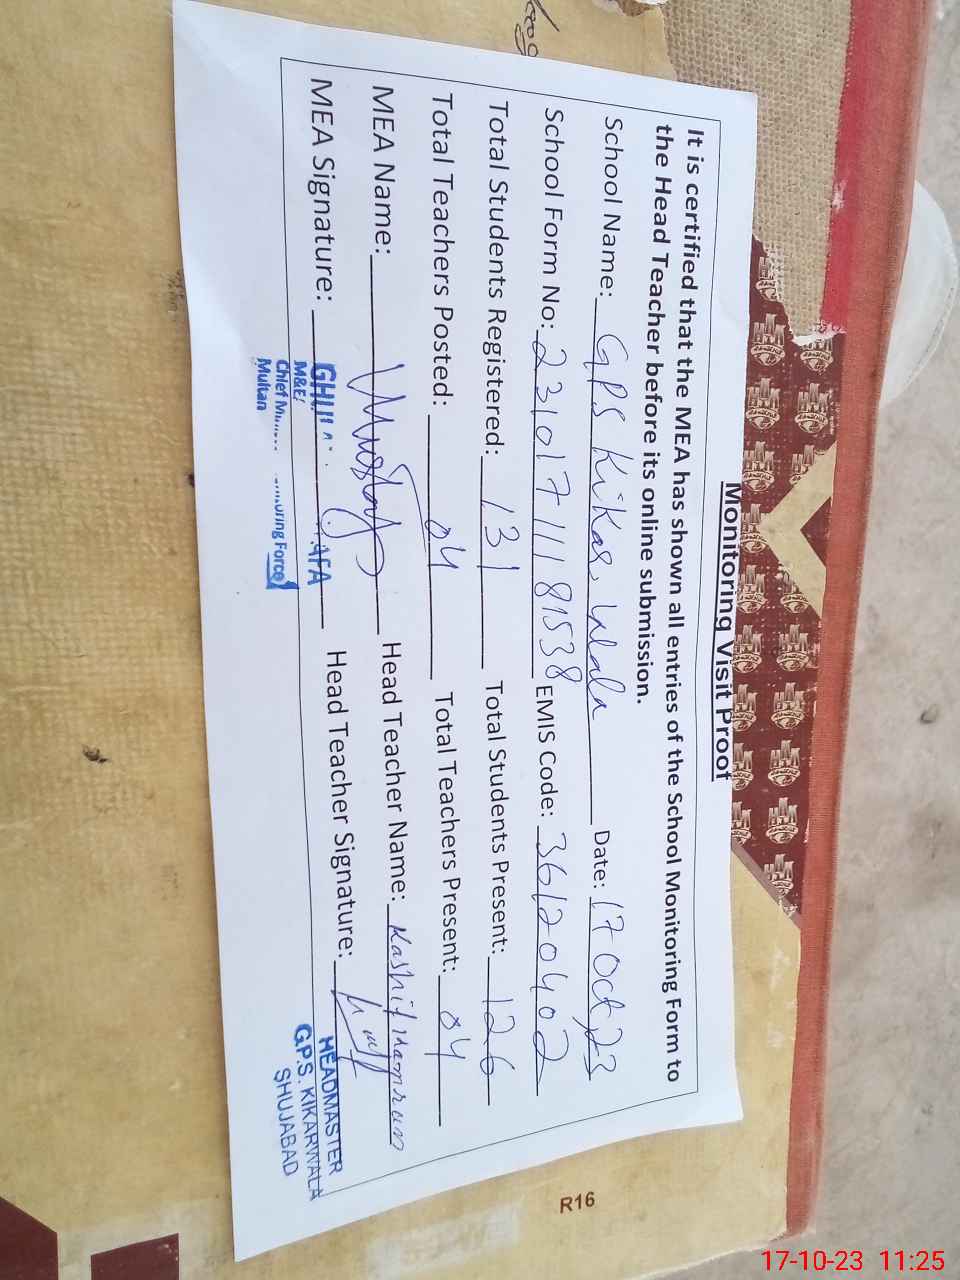 Monitoring Visit Proof
It is certified that the MEA has shown all entries of the School Monitoring Form to
the Head Teacher before its online submission.
School Name: GPS Kikar Wala Date: 17 Oct, 23
School Form No: 23101711181538 EMIS Code: 36120402
Total Students Registered: 131 Total Students Present: 126
Total Teachers Posted: 04 Total Teachers Present: 04
MEA Name: Head Teacher Name: Kashif Kamran
MEA Signature: Head Teacher Signature:
M&E
Chief Force
Multan
HEADMASTER
G.P.S. KIKARWALA
SHUJABAD
R16
17-10-23 11:25